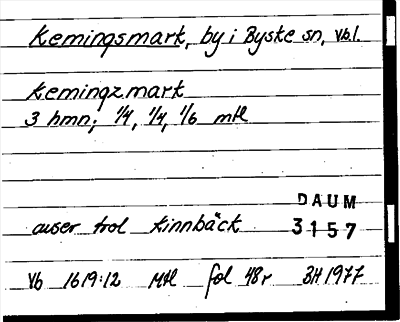 Kemingsmark, by i Byske sn, Vb.l.
Kemingzmark
3 hmn; 1/4, 1/4, 1/6 mtl
DAUM
3157
avser trol Kinnbäck
Vb 1619:12 Mtl fol 48r BH 1977